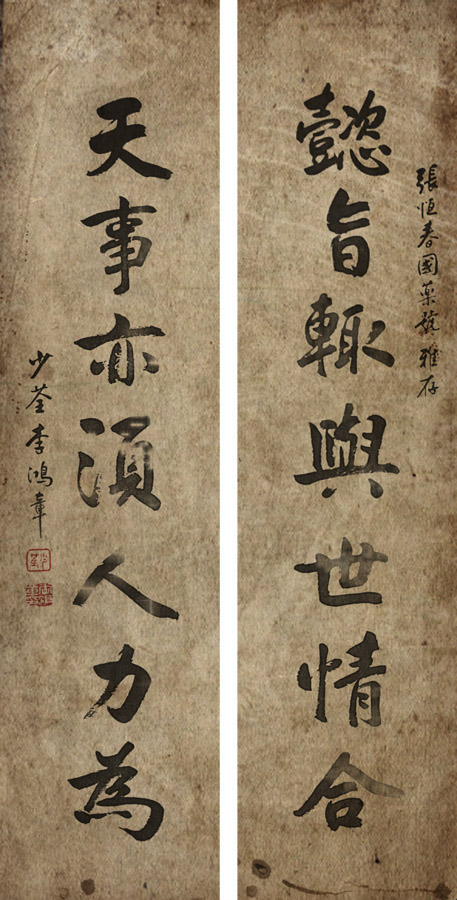 張恒春國藥號雅存
懿旨輒與世情合
天事亦須人力為
少荃李鴻章